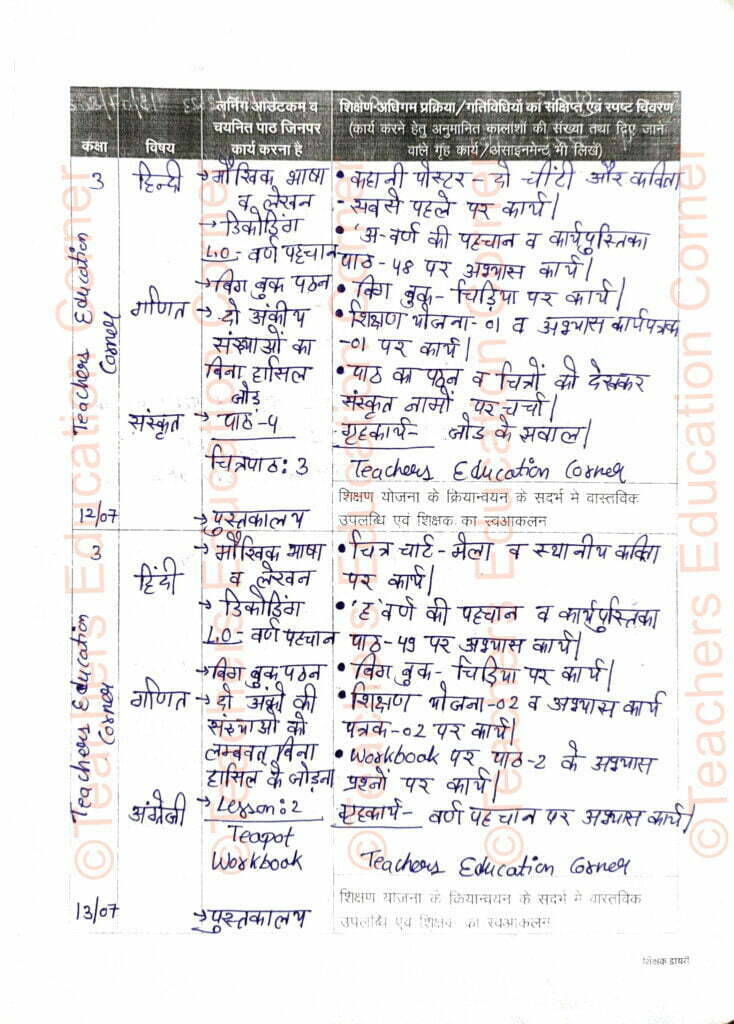 कक्षा
विषय
लर्निंग आउटकम व
चयनित पाठ जिनपर
कार्य करना है
शिक्षण-अधिगम प्रक्रिया/गतिविधियों का संक्षिप्त एवं स्पष्ट विवरण
(कार्य करने हेतु अनुमानित कालांशों की संख्या तथा दिए जाने
वाले गृह कार्य/असाइनमेन्ट भी लिखें)
3
Teachers Education
Corner
12/07
हिन्दी
गणित
संस्कृत
→ मौखिक भाषा
व लेखन
→ डिकोडिंग
L.O- वर्ण पहचान
→ बिग बुक पठन
→ दो अंकीय
संख्याओं का
बिना हासिल
जोड
→ पाठ-4
चित्रपाठ: 3
→ पुस्तकालय
• कहानी पोस्टर- दो चींटी और कविता
- सबसे पहले पर कार्य|
• 'अ-वर्ण की पहचान व कार्यपुस्तिका
पाठ-48 पर अभ्यास कार्य|
• बिग बुक- चिड़िया पर कार्य|
• शिक्षण योजना-01 व अभ्यास कार्यपत्रक
-01 पर कार्य|
• पाठ का पठन व चित्रों को देखकर
संस्कृत नामों पर चर्चा|
गृहकार्य- जोड के सवाल|
Teachers Education Corner
शिक्षण योजना के क्रियान्वयन के सदर्भ मे वास्तविक
उपलब्धि एवं शिक्षक का स्वआकलन
3
Teachers Education
Corner
13/07
हिंदी
गणित
अंग्रेजी
→ मौखिक भाषा
व लेखन
→ डिकोडिंग
L.O- वर्ण पहचान
→ बिग बुक पठन
→ दो अंको की
संख्याओ को
लम्बवत् बिना
हासिल के जोड़ना
→ Lesson: 2
Teapot
Workbook
→ पुस्तकालय
• चित्र चार्ट- मेला व स्थानीय कविता
पर कार्य|
• 'ह' वर्ण की पहचान व कार्यपुस्तिका
पाठ-49 पर अभ्यास कार्य|
• बिग बुक- चिड़िया पर कार्य|
• शिक्षण योजना-02 व अभ्यास कार्य
पत्रक-02 पर कार्य|
• Workbook पर पाठ-2 के अभ्यास
प्रश्नों पर कार्य|
गृहकार्य- वर्ण पहचान पर अभ्यास कार्य|
Teachers Education Corner
शिक्षण योजना के क्रियान्वयन के सदर्भ मे वास्तविक
उपलब्धि एवं शिक्षक का स्वआकलन
शिक्षक डायरी
©Teachers Education Corner
©Teachers Education Corner
©Teachers Education Corner